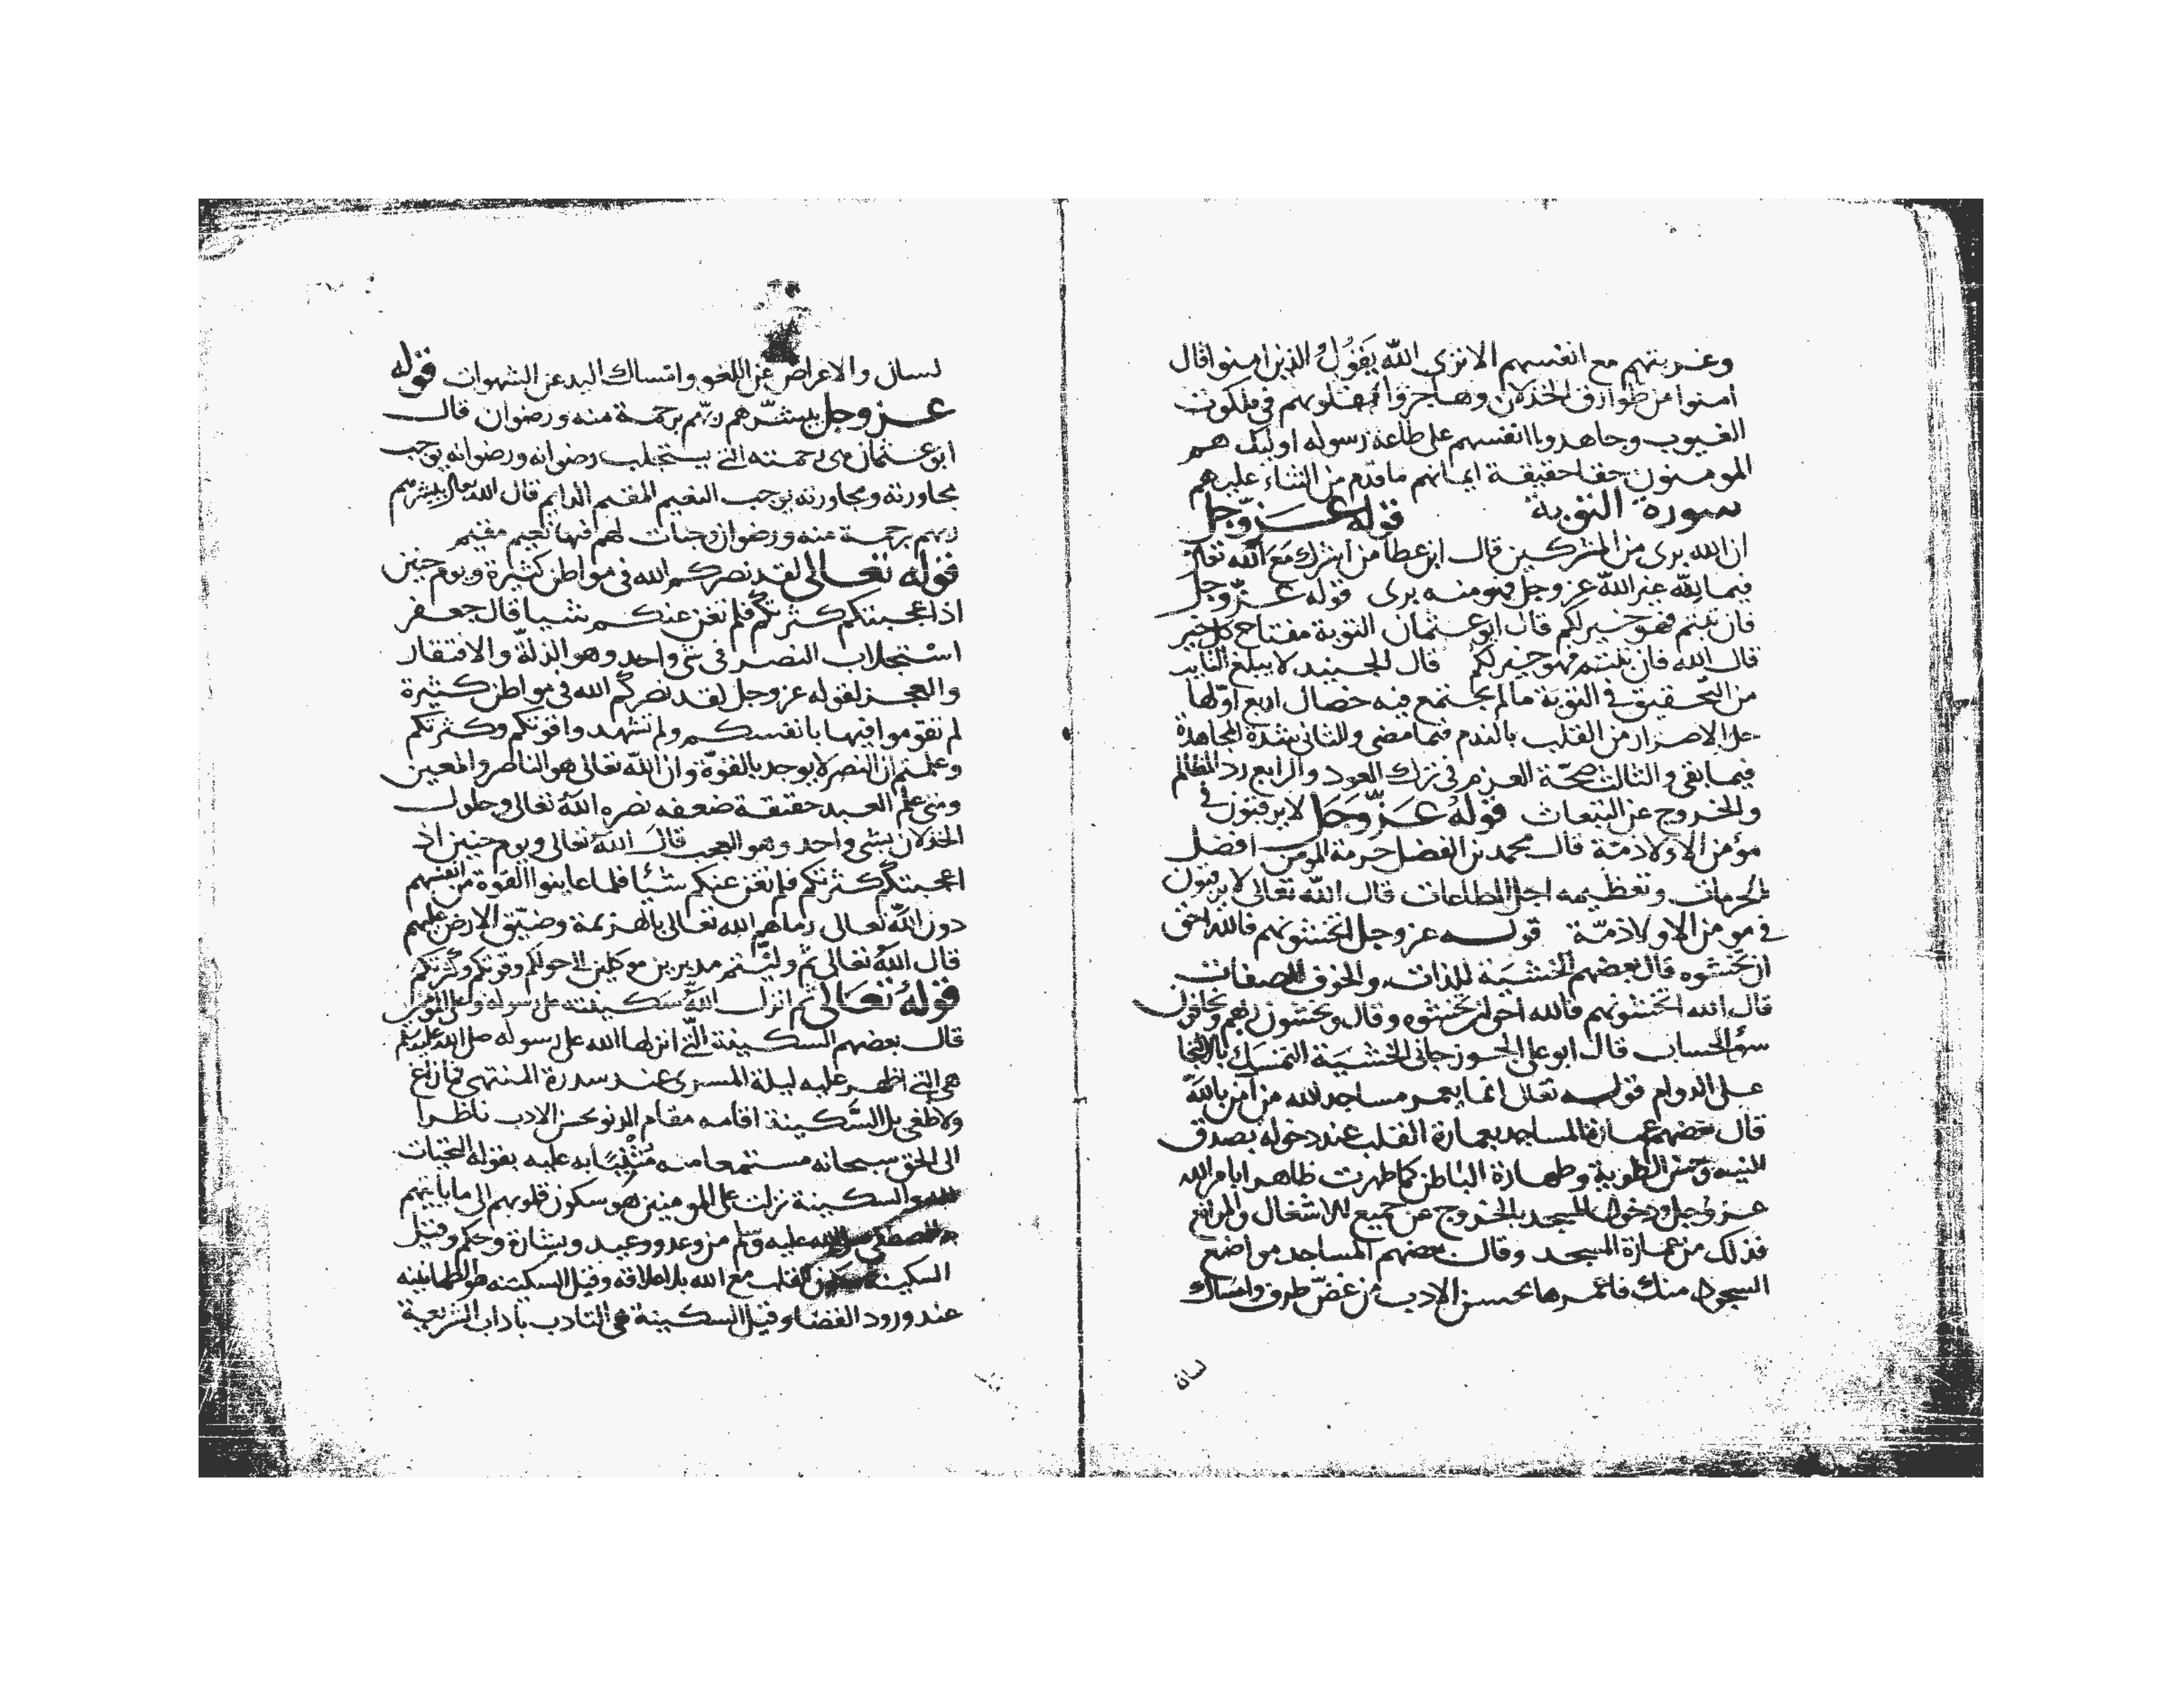 وغربتهم مع انفسهم الا تري الله يقول الذين امنوا قال
امنوا من طوارق الخذلان وهاجروا بقلوبهم في ملكوت
الغيوب وجاهدوا انفسهم على طاعة رسوله اوليك هم
المومنون حقا حقيقة ايمانهم ما قدم من الثناء عليهم
سورة التوبة قوله عز وجل
ان الله بري من المشركين قال ابن عطا من اشرك مع الله تعالى
فيما لله غير الله عز وجل فهو منه بري قوله عز وجل
فان تبتم فهو خير لكم قال ابو عثمان التوبة مفتاح كل خير
قال الله فان تبتم فهو خير لكم قال الجنيد لا يبلغ التايب
من التحقيق في التوبة ما لم يجتمع فيه خصال اربع اولها
حل الاصرار من القلب بالندم فيما مضى والثاني شدة المجاهدة
فيما بقي والثالث صحة العزم في ترك العود والرابع رد المظالم
والخروج عن التبعات قوله عز وجل لا يرقبون في
مؤمن الا ولا ذمة قال محمد بن الفضل حرمة المومن افضل
الحرمات وتعظيمه اجل الطاعات قال الله تعالى لا يرقبون
في مومن الا ولا ذمة قوله عز وجل اتخشونهم فالله احق
ان تخشوه قال بعضهم الخشية للذات والخوف للصفات
قال الله اتخشونهم فالله احق ان تخشوه وقال ويخشون ربهم ويخافون
سوء الحساب قال ابو علي الجوزجاني الخشية التمسك بالالتجا
على الدوام قوله تعالى انما يعمر مساجد الله من آمن بالله
قال بعضهم عمارة المساجد بعمارة القلب عند دخوله بصدق
النية وحسن الطوية وطهارة الباطن كما طهرت ظاهرا بامر الله
عز وجل ودخول المسجد بالخروج عن جميع الاشغال والموانع
فذلك من عمارة المسجد وقال بعضهم المساجد مواضع
السجود منك فاعمرها بحسن الادب من غض طرف وامساك
لسان
لسان والاعراض عن اللغو وامساك اليد عن الشهوات قوله
عز وجل يبشرهم ربهم برحمة منه ورضوان قال
ابو عثمان هى رحمته التي يستجلب رضوانه ورضوانه يوجب
مجاورته ومجاورته يوجب النعيم المقيم الدايم قال الله تعالى يبشرهم
ربهم برحمة منه ورضوان وجنات لهم فيها نعيم مقيم
قوله تعالى لقد نصركم الله في مواطن كثيرة ويوم حنين
اذ اعجبتكم كثرتكم فلم تغن عنكم شيا قال جعفر
استجلاب النصر في شي واحد وهو الذلة والافتقار
والعجز لقوله عز وجل لقد نصركم الله في مواطن كثيرة
لم تقوموا فيها بانفسكم ولم تشهدوا قوتكم وكثرتكم
وعلمتم ان النصر لا يوجد بالقوة وان الله تعالى هو الناصر والمعين
ومتى علم العبد حقيقة ضعفه نصره الله تعالى وحلول
الخذلان بشي واحد وهو العجب قال الله تعالى ويوم حنين اذ
اعجبتكم كثرتكم فلم تغن عنكم شيئا فلما عاينوا القوة من انفسهم
دون الله تعالى رماهم الله تعالى بالهزيمة وضيق الارض عليهم
قال الله تعالى ثم وليتم مدبرين موكلين الى حولكم وقوتكم وكثرتكم
قوله تعالى ثم انزل الله سكينته على رسوله وعلى المومنين
قال بعضهم السكينة التي انزلها الله على رسوله صلى الله عليه وسلم
هي التي اظهر عليه ليلة المسرى عند سدرة المنتهى فما زاغ
ولا طغى بل السكينة اقامه مقام الدنو بحسن الادب ناظرا
الى الحق سبحانه مستمعا منه مثنيا به عليه بقوله التحيات
لله والسكينة نزلت على المومنين هو سكون قلوبهم الى ما ياتيهم
به المصطفى صلى الله عليه وسلم من وعد ووعيد وبشارة وحكم وقيل
السكينة سكون القلب مع الله بلا علاقة وقيل السكينة هو الطمانينة
عند ورود القضا وقيل السكينة هي التادب باداب الشريعة